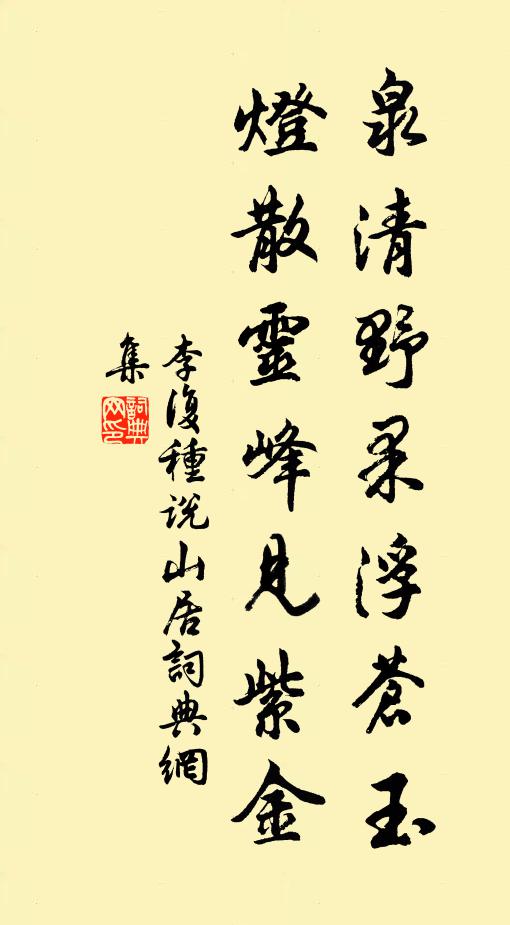 泉清野果浮蒼玉
燈散靈峰見紫金
李復種說山居詞典網
集
詞典
网印